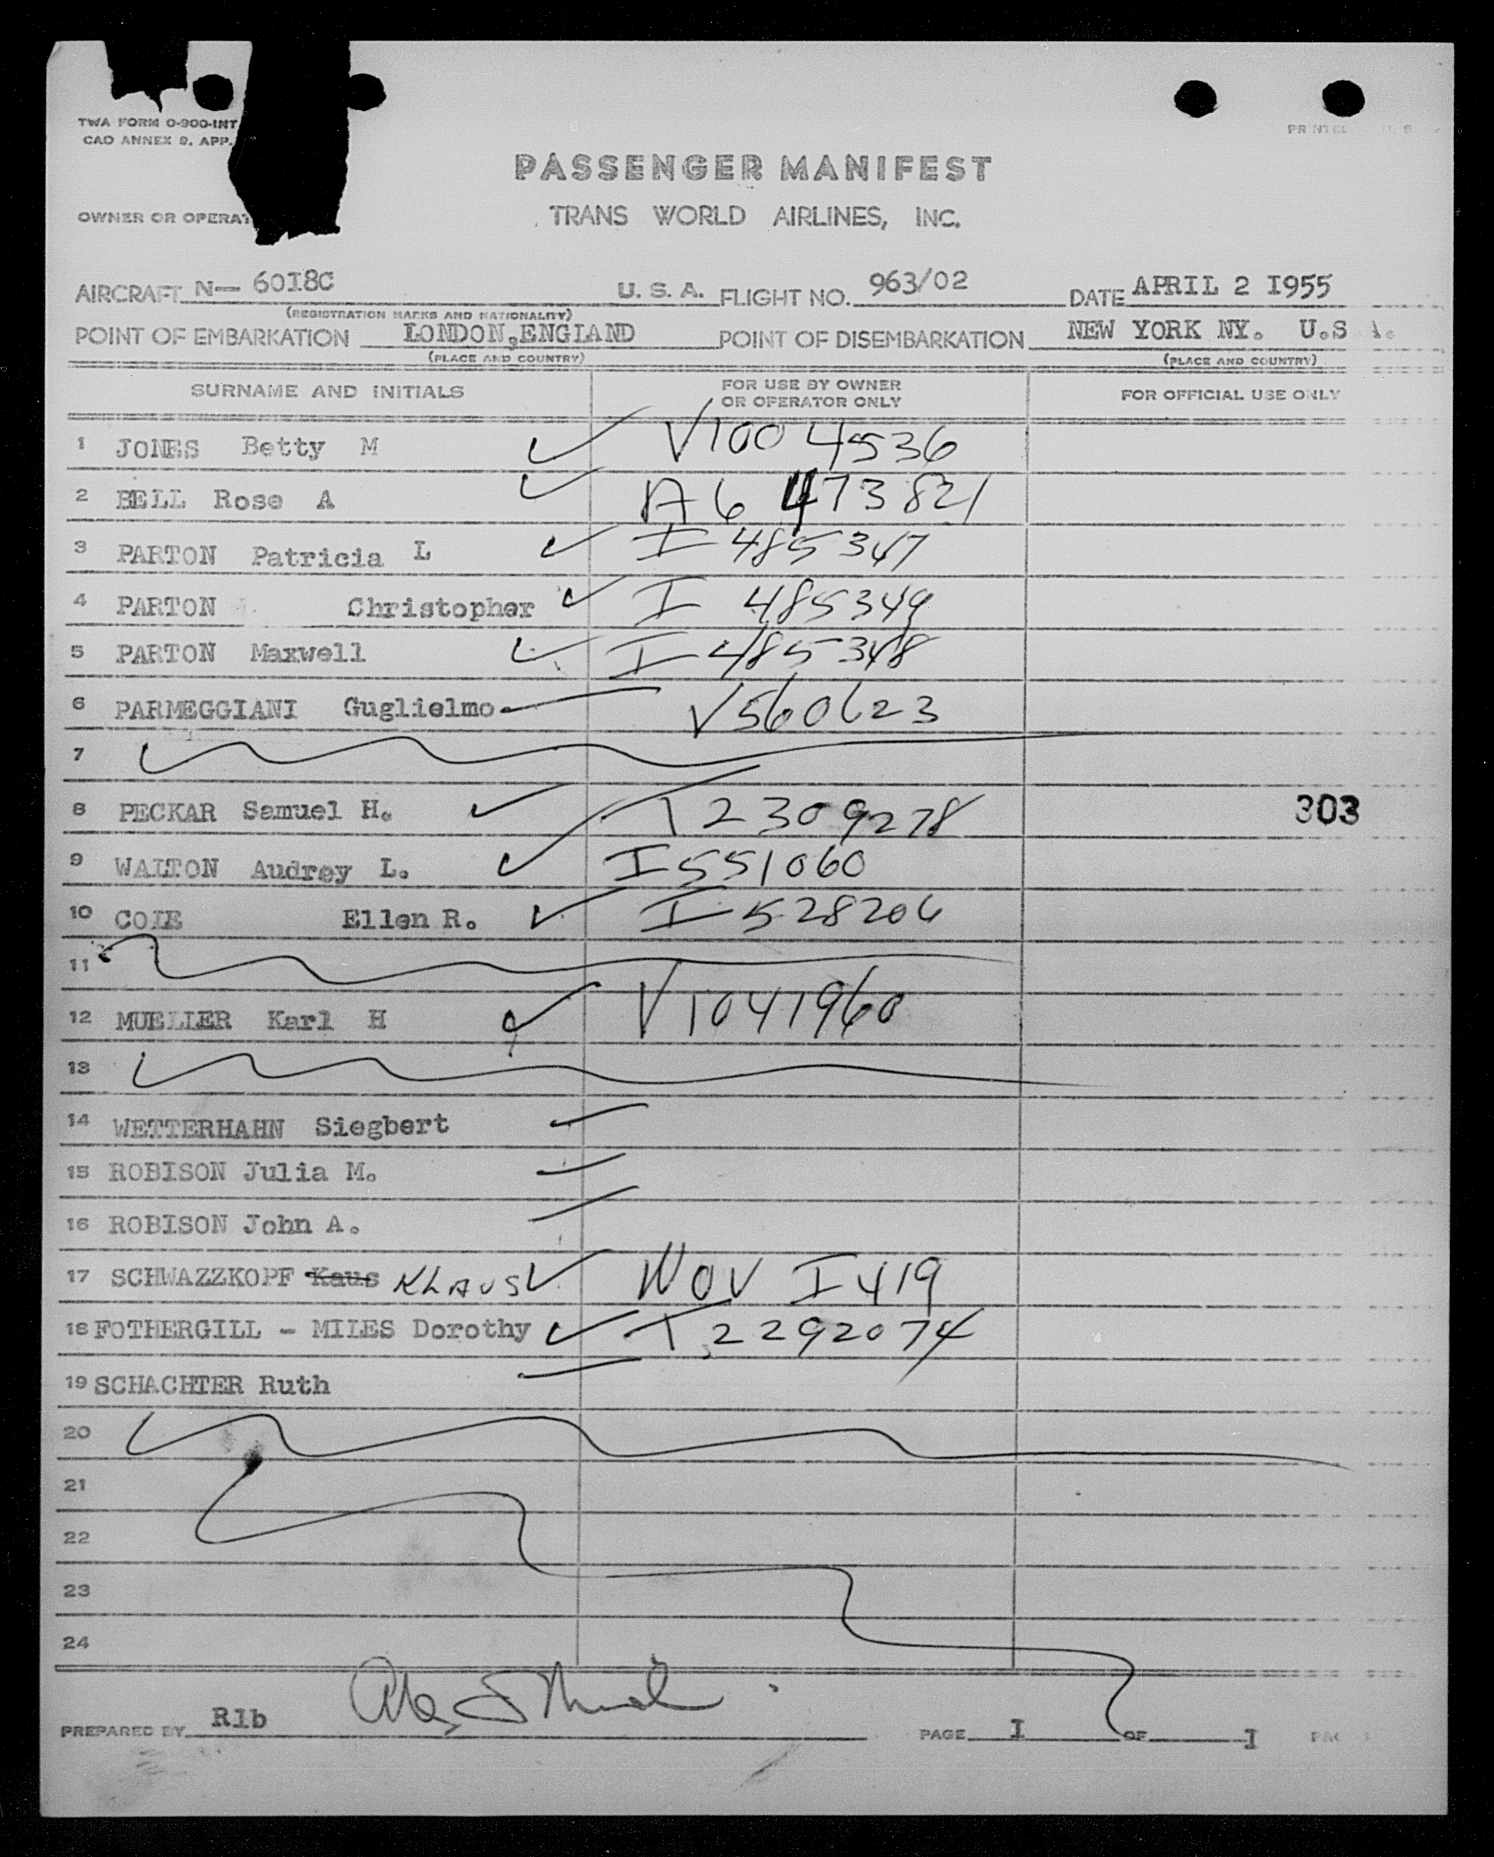 TWA FORM O-900-INT
CAO ANNEX 9, APP.
PRINTED
PASSENGER MANIFEST
OWNER OR OPERAT
TRANS WORLD AIRLINES, INC.
AIRCRAFT N— 60I8C U. S. A. FLIGHT NO. 963/02 DATE APRIL 2 I955
(REGISTRATION MARKS AND NATIONALITY)
POINT OF EMBARKATION LONDON,ENGLAND POINT OF DISEMBARKATION NEW YORK NY. U.S A.
(PLACE AND COUNTRY) (PLACE AND COUNTRY)
SURNAME AND INITIALS FOR USE BY OWNER OR OPERATOR ONLY FOR OFFICIAL USE ONLY
1 JONES Betty M V1004536
2 BELL Rose A A6 473821
3 PARTON Patricia L I 485347
4 PARTON Christopher I 485349
5 PARTON Maxwell I 485348
6 PARMEGGIANI Guglielmo V560623
7
8 PECKAR Samuel H. T2309278 303
9 WALTON Audrey L. I551060
10 COLE Ellen R. I 528206
11
12 MUELLER Karl H V1041960
13
14 WETTERHAHN Siegbert
15 ROBISON Julia M.
16 ROBISON John A.
17 SCHWAZZKOPF Kaus KLAUS NOV I419
18 FOTHERGILL - MILES Dorothy T2292074
19 SCHACHTER Ruth
20
21
22
23
24
PREPARED BY Rlb PAGE I OF I